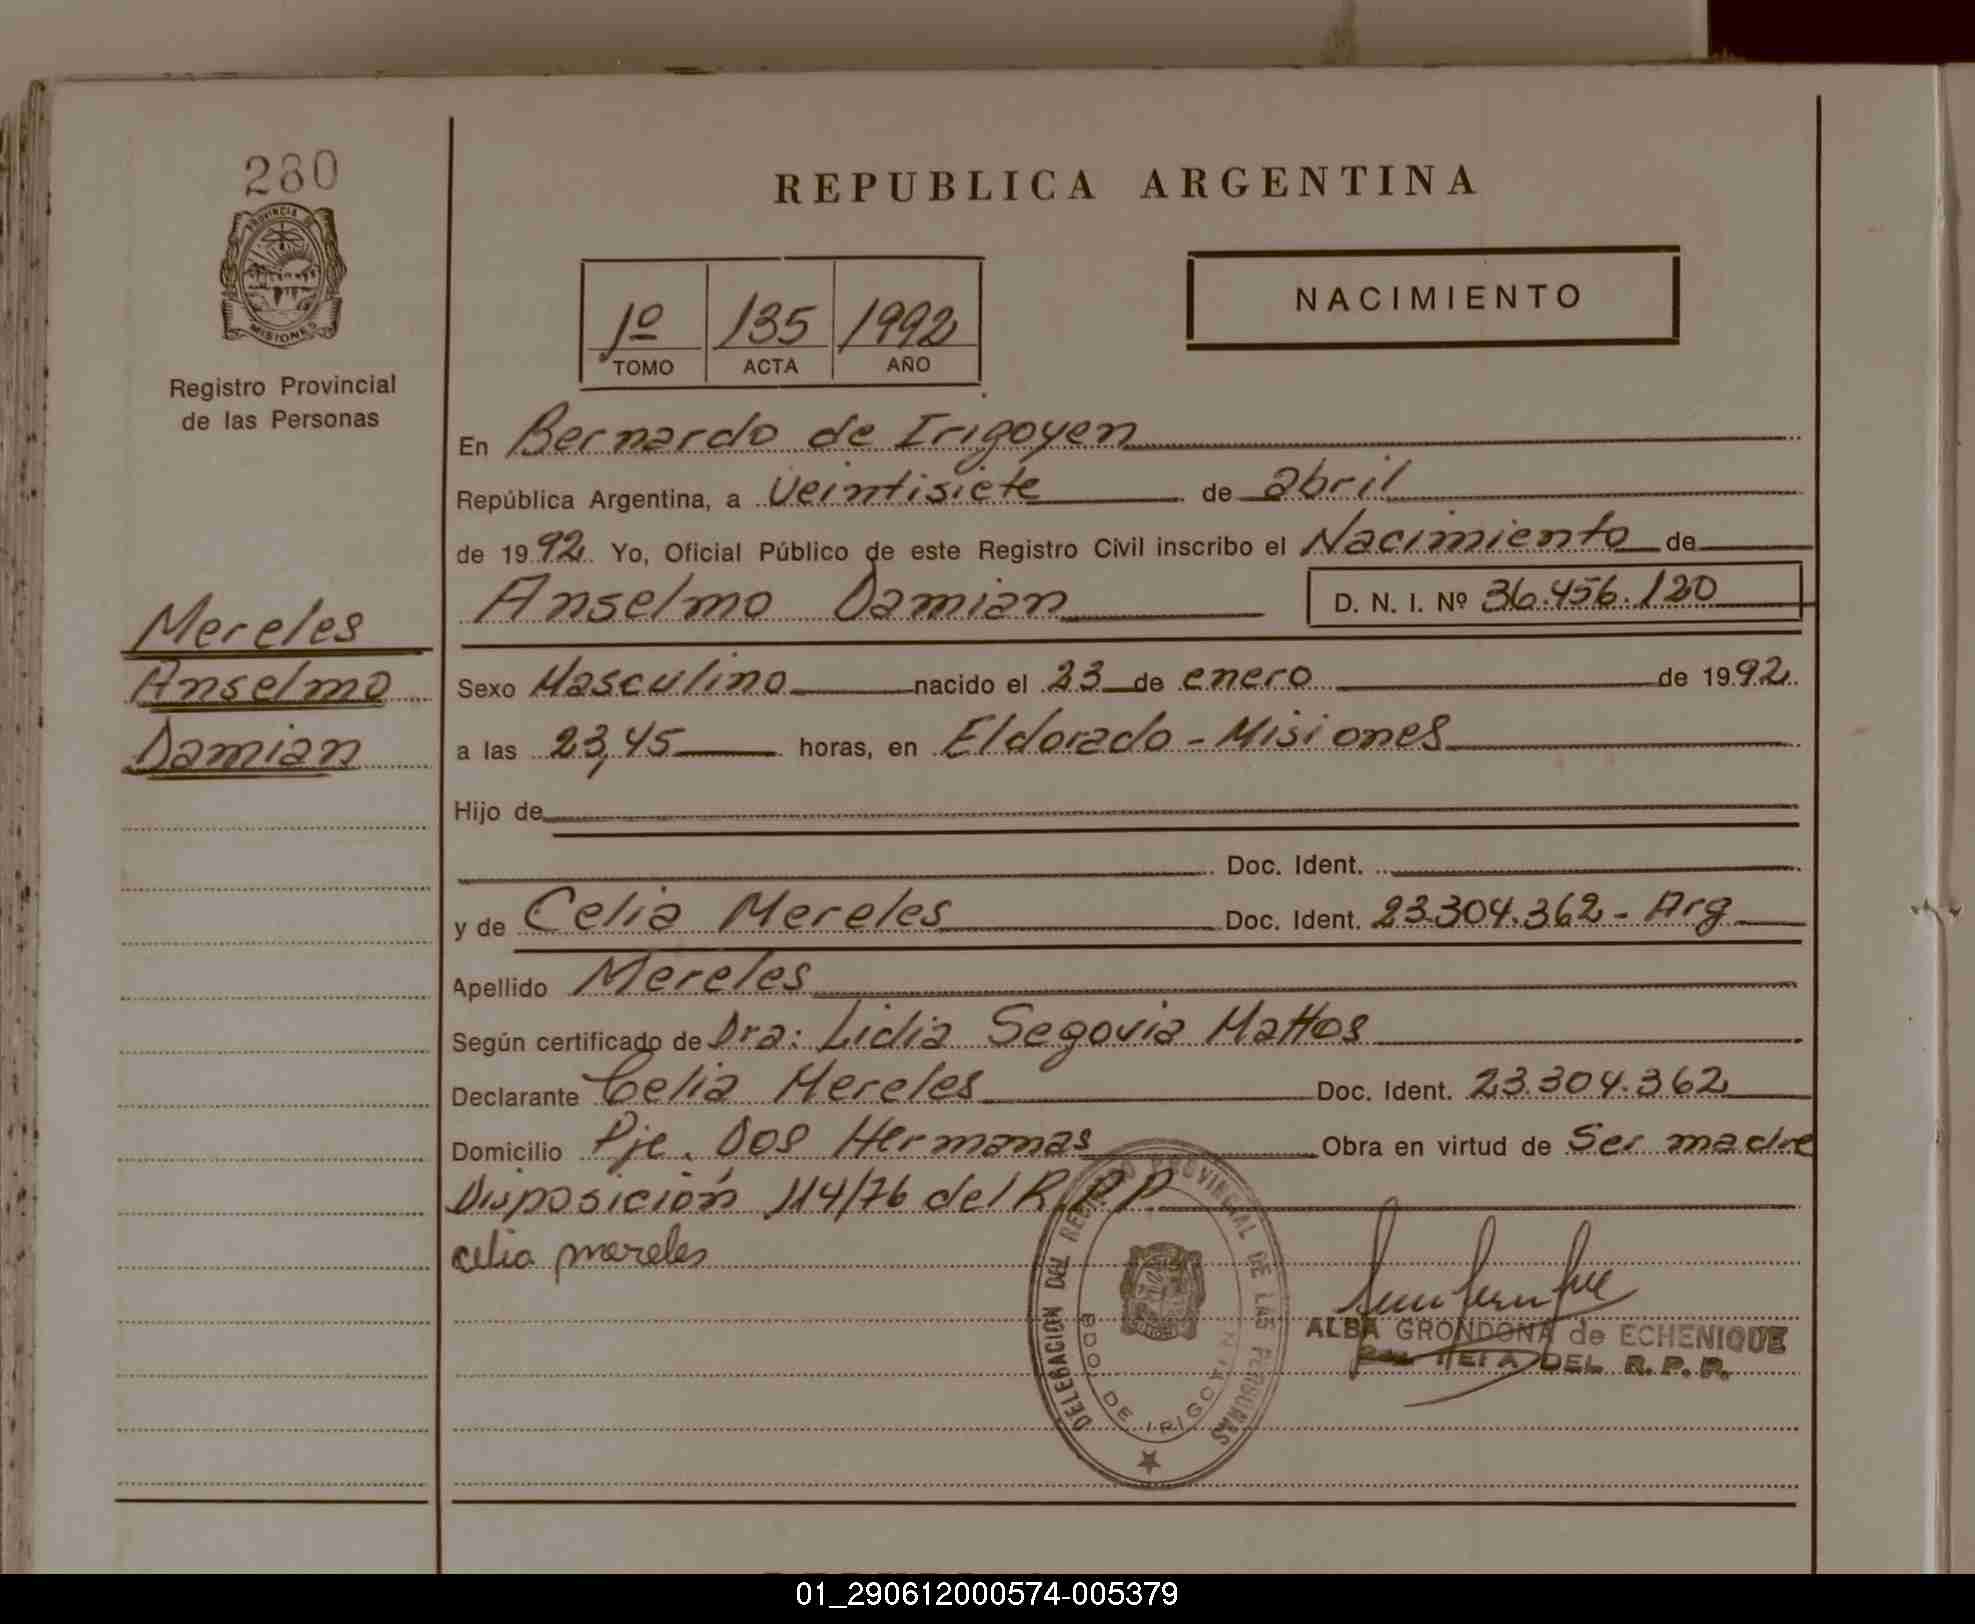 280
PROVINCIA DE
MISIONES
Registro Provincial
de las Personas
Mereles
Anselmo
Damian
REPUBLICA ARGENTINA
1º 135 1992
TOMO ACTA AÑO
NACIMIENTO
En Bernardo de Irigoyen
República Argentina, a Veintisiete de abril
de 1992. Yo, Oficial Público de este Registro Civil inscribo el Nacimiento de
Anselmo Damian D. N. I. Nº 36.456.120
Sexo Masculino nacido el 23 de enero de 1992.
a las 23,45 horas, en Eldorado - Misiones
Hijo de
Doc. Ident.
y de Celia Mereles Doc. Ident. 23.304.362 - Arg
Apellido Mereles
Según certificado de Dra: Lidia Segovia Mattos
Declarante Celia Mereles Doc. Ident. 23.304.362
Domicilio Pje. Dos Hermanas Obra en virtud de Ser madre
Disposición 114/76 del R.P.P.
celia mereles
DELEGACION DEL REGISTRO PROVINCIAL DE LAS PERSONAS
BDO. DE IRIGOYEN
ALBA GRONDONA de ECHENIQUE
DEL R. P. P.
01_290612000574-005379